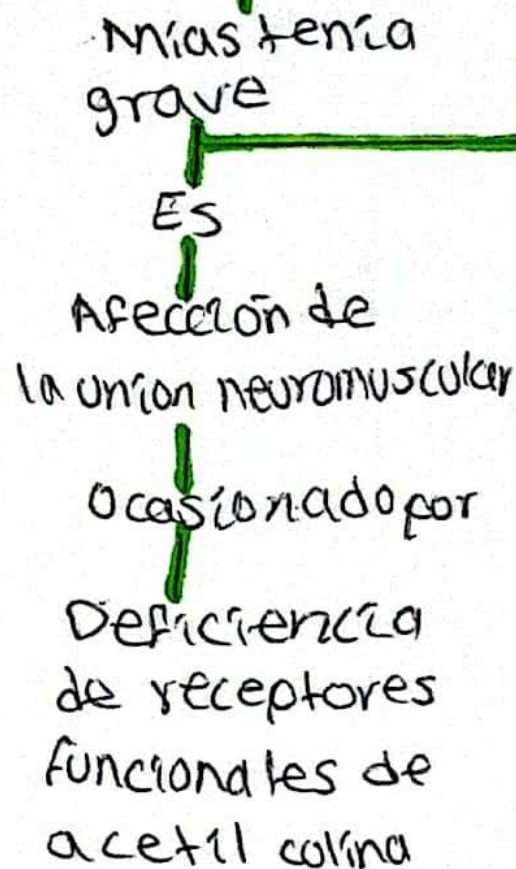 Miastenia
grave
Es
Afección de
la unión neuromuscular
Ocasionado por
Deficiencia
de receptores
funcionales de
acetil colina